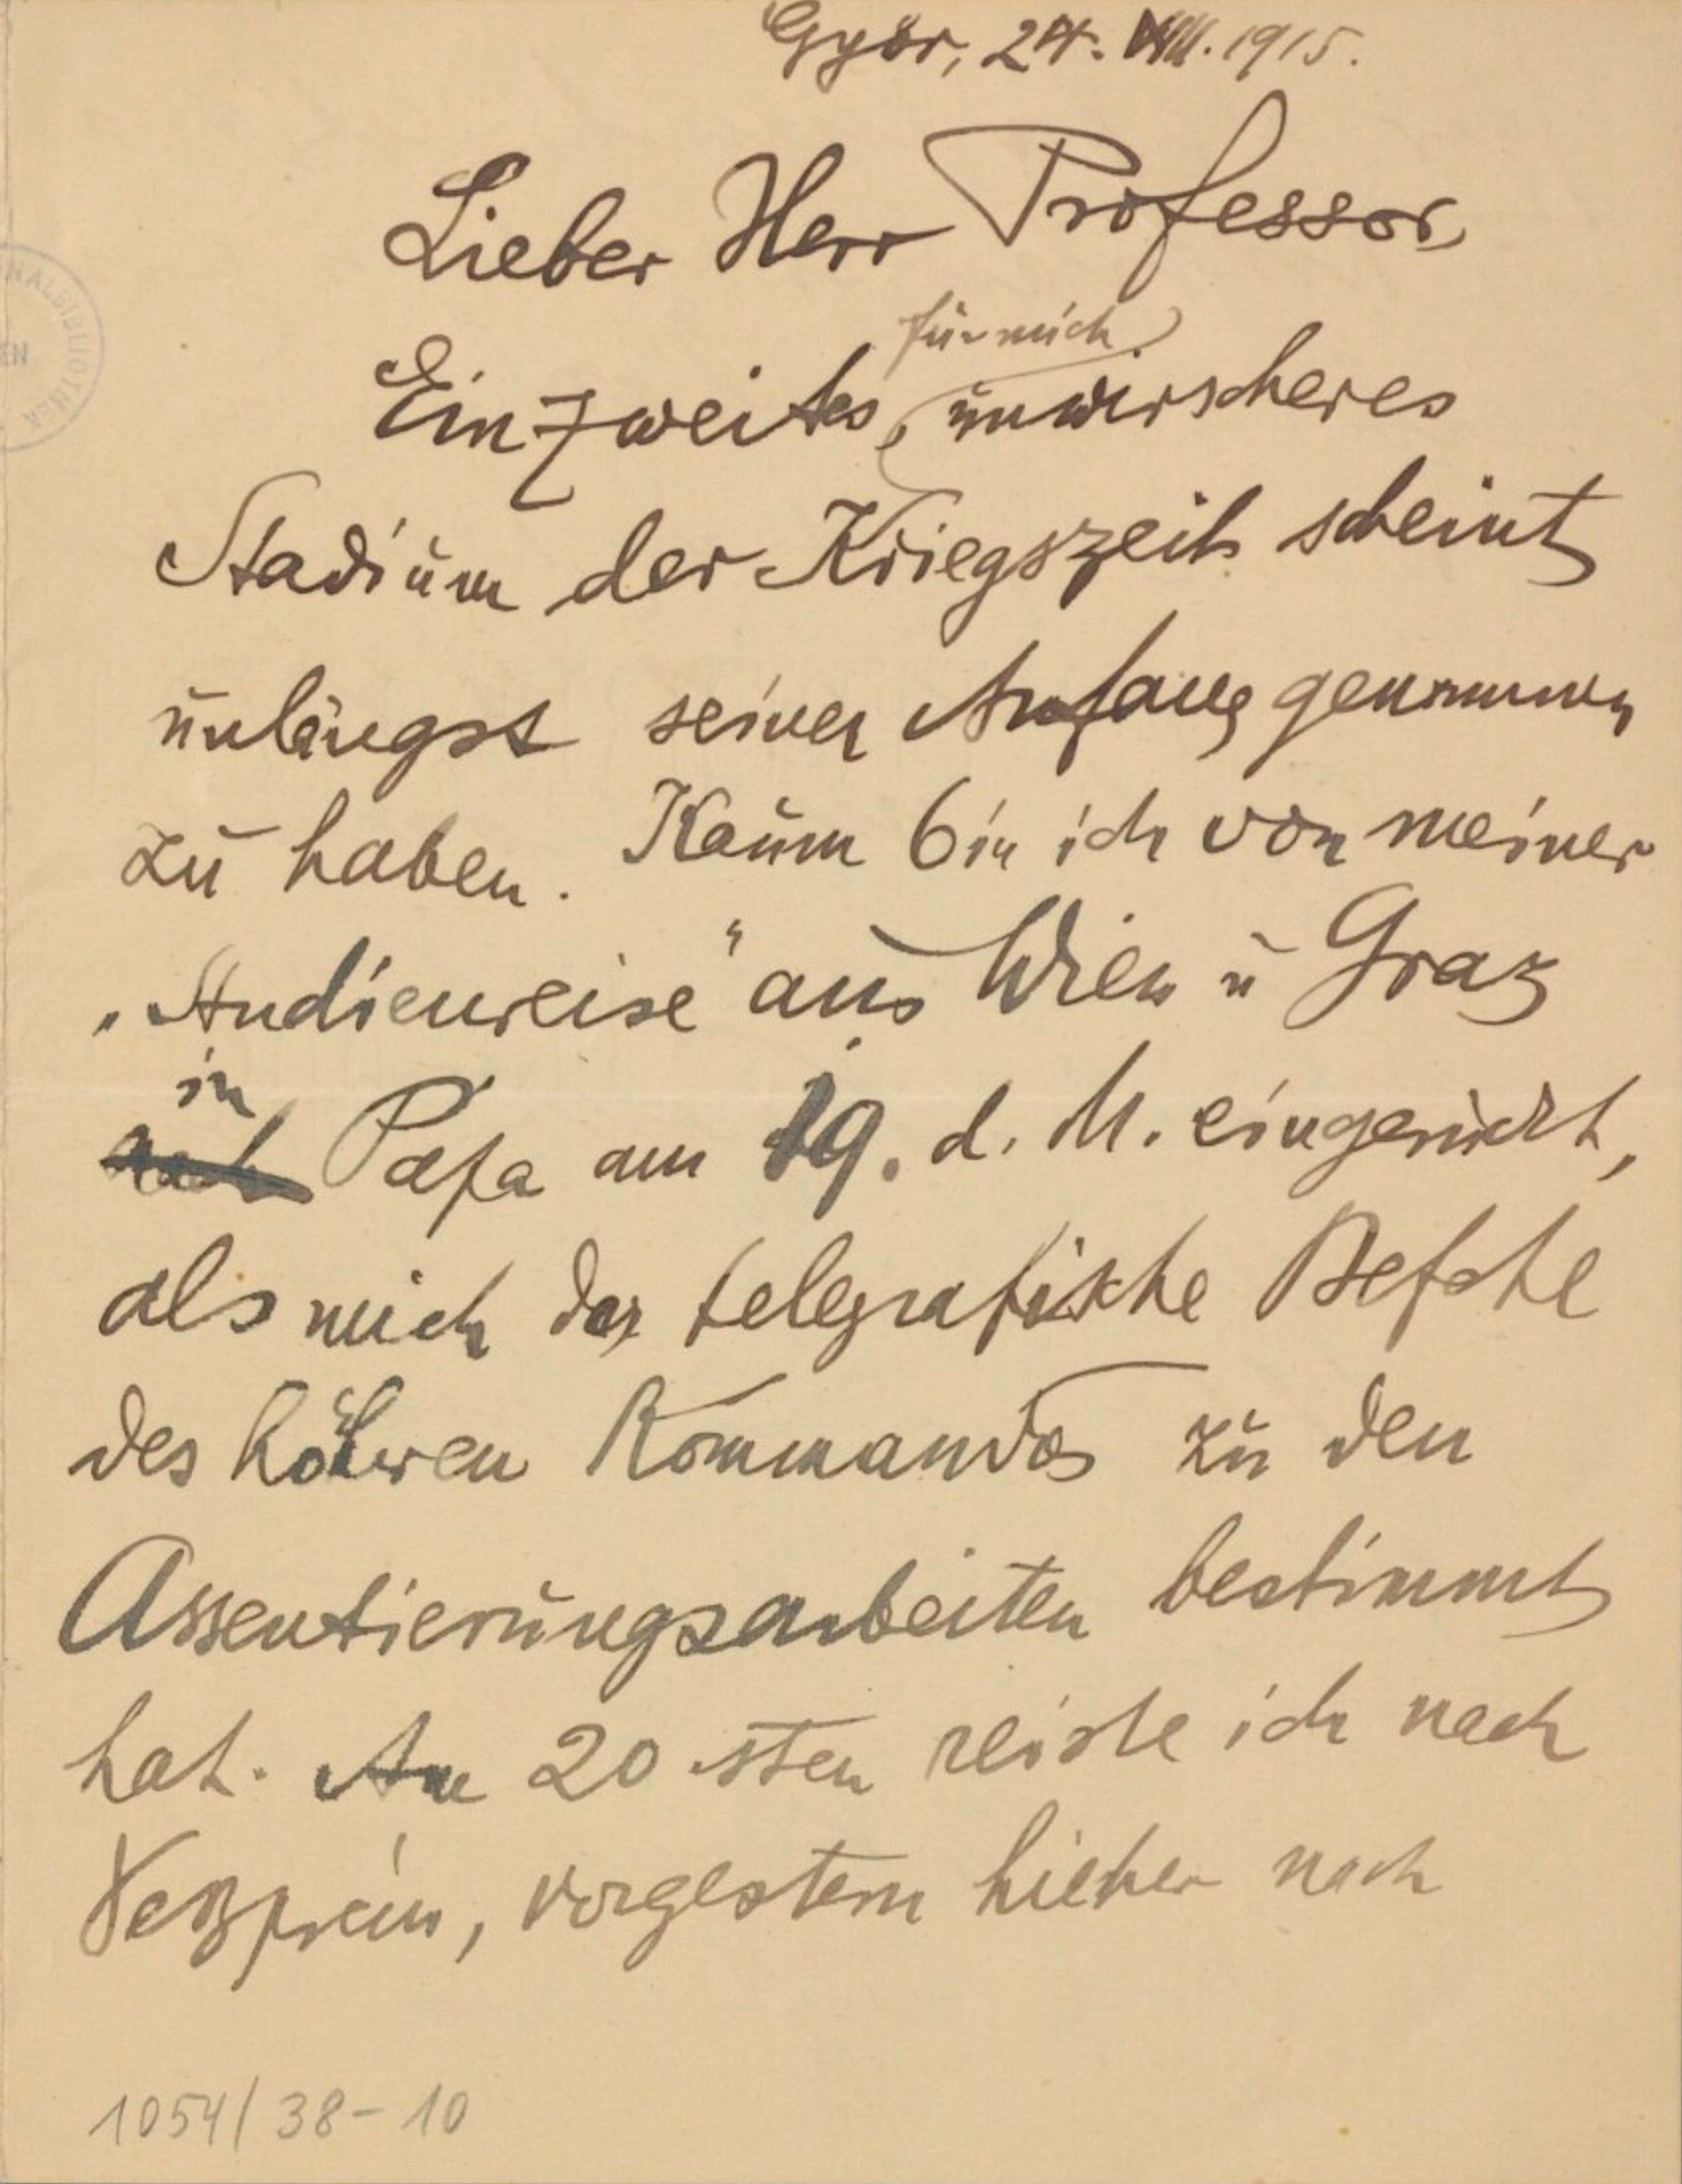 Győr, 24. VIII. 1915.
Lieber Herr Professor,
für mich
Ein zweites, unwirscheres
Stadium der Kriegszeit scheint
unlängst seinen Anfang genommen
zu haben. Kaum bin ich von meiner
„Studienreise" aus Wien u Graz
in
nach Papa am 19. d. M. eingerückt,
als mich der telegrafische Befehl
des höheren Kommandos zu den
Assentierungsarbeiten bestimmt
hat. Am 20sten reiste ich nach
Veszprém, vorgestern hieher nach
1054/38-10